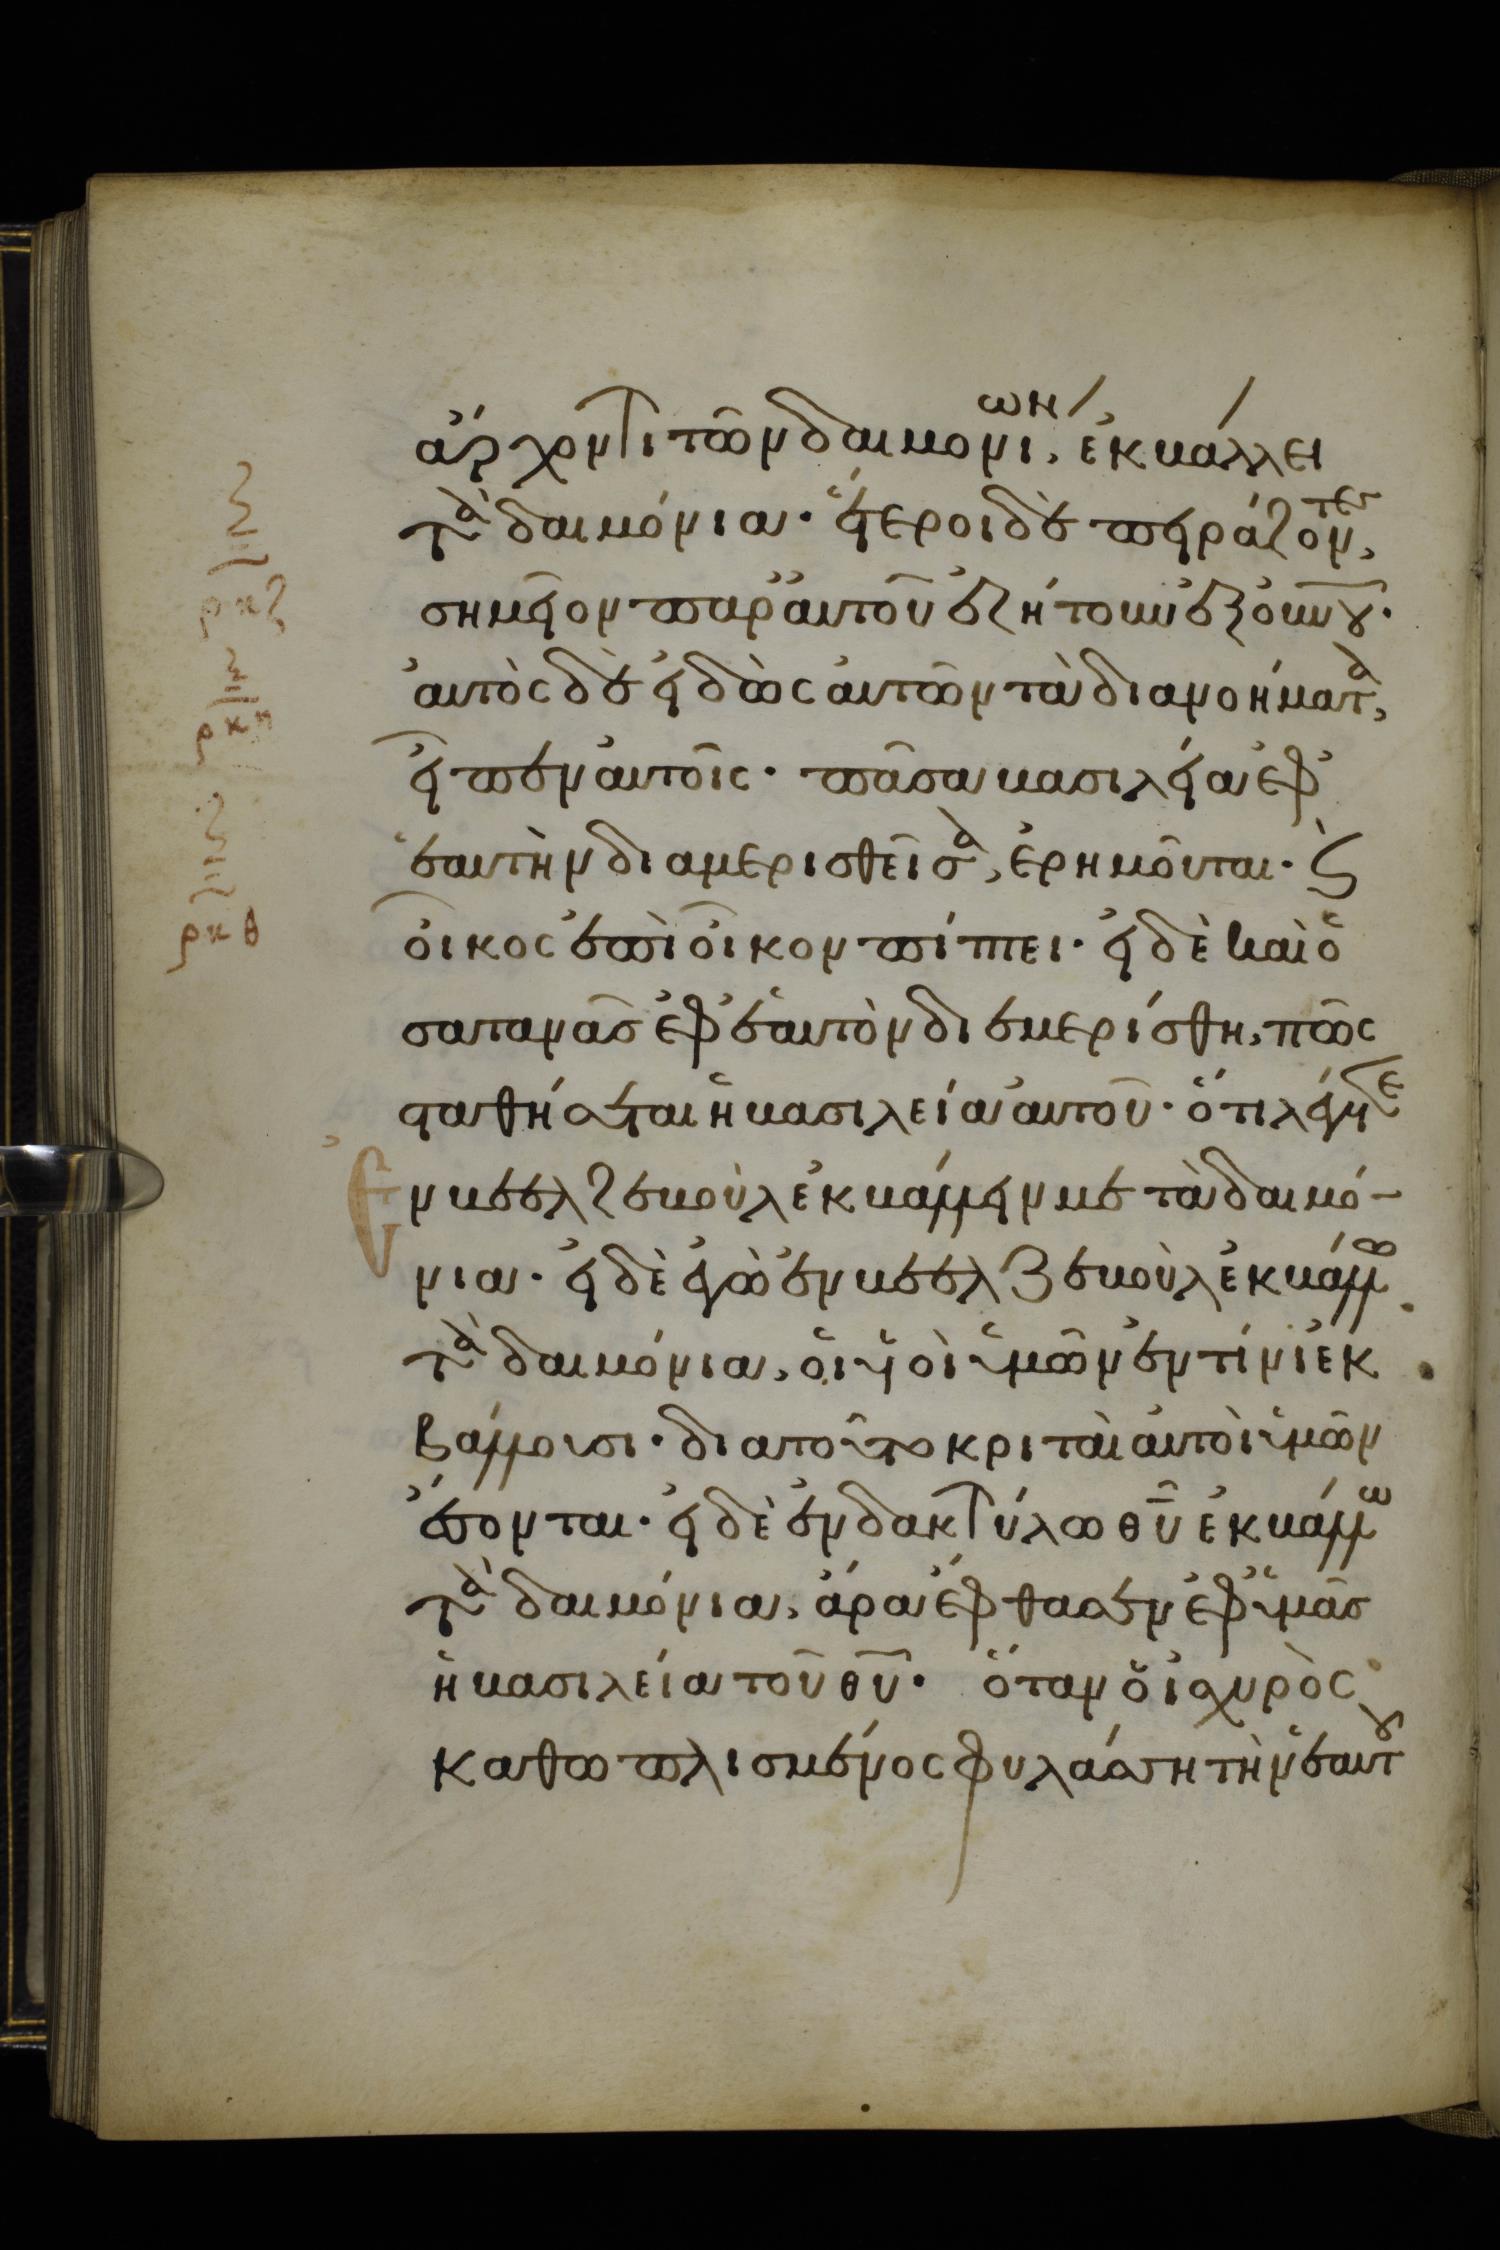 ἄρχοντι τῶν δαιμονίων, ἐκβάλλει
τὰ δαιμόνια· ἕτεροι δὲ πειράζοντες,
σημεῖον παρ' αὐτοῦ ἐζήτουν ἐξ οὐνου·
αὐτὸς δὲ εἰδὼς αὐτῶν τὰ διανοήματα,
εἶπεν αὐτοῖς· πᾶσα βασιλεία ἐφ'
ἑαυτὴν διαμερισθεῖσα, ἐρημοῦται· ϗ
οἶκος ἐπὶ οἶκον πίπτει· εἰ δὲ καὶ ὁ
σατανᾶς ἐφ' ἑαυτὸν διεμερίσθη, πῶς
σταθήσεται ἡ βασιλεία αὐτοῦ· ὅτι λέγετε
ἐν βεελζεβοὺλ ἐκβάλλειν με τὰ δαιμό-
νια· εἰ δὲ ἐγὼ ἐν βεελζεβοὺλ ἐκβάλλω
τὰ δαιμόνια, οἱ υἱοὶ ὑμῶν ἐν τίνι ἐκ
βάλλουσι· διατοῦτο κριταὶ αὐτοὶ ὑμῶν
ἔσονται· εἰ δὲ ἐν δακτύλω θῦ ἐκβάλλω
τὰ δαιμόνια, ἄρα ἔφθασεν ἐφ' ὑμᾶς
ἡ βασιλεία τοῦ θῦ· ὅταν ὁ ἰσχυρὸς
καθωπλισμένος φυλάσση τὴν ἑαυτοῦ
ρκζ
ρκη
ρκθ